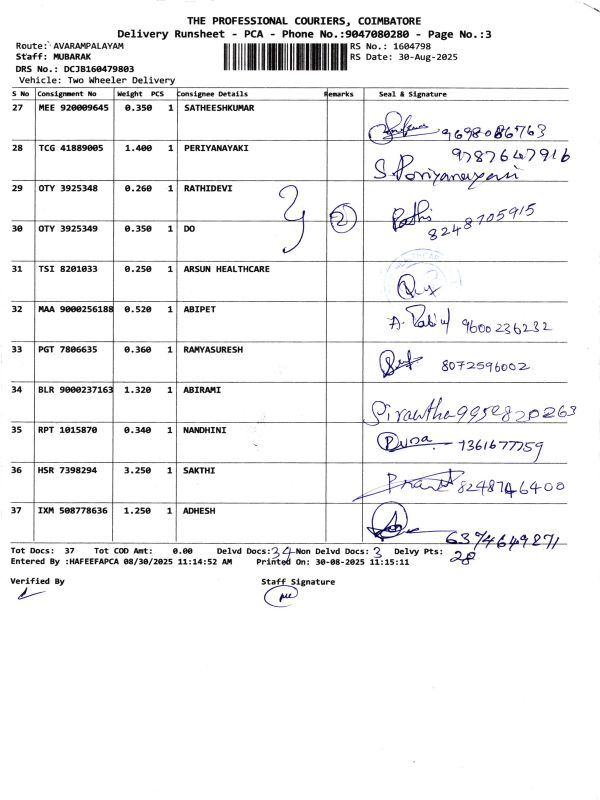 THE PROFESSIONAL COURIERS, COIMBATORE
Delivery Runsheet - PCA - Phone No.:9047080280 - Page No.:3
Route: AVARAMPALAYAM RS No.: 1604798
Staff: MUBARAK RS Date: 30-Aug-2025
DRS No.: DCJB160479803
Vehicle: Two Wheeler Delivery
S No Consignment No Weight PCS Consignee Details Remarks Seal & Signature
27 MEE 920009645 0.350 1 SATHEESHKUMAR
9698086763
28 TCG 41889005 1.400 1 PERIYANAYAKI 9787647916
S. Poriyanayaki
29 OTY 3925348 0.260 1 RATHIDEVI
2 Rathi 8248705915
30 OTY 3925349 0.350 1 DO
31 TSI 8201033 0.250 1 ARSUN HEALTHCARE
32 MAA 9000256188 0.520 1 ABIPET
9600236232
33 PGT 7806635 0.360 1 RAMYASURESH
8072596002
34 BLR 9000237163 1.320 1 ABIRAMI
35 RPT 1015870 0.340 1 NANDHINI
36 HSR 7398294 3.250 1 SAKTHI
37 IXM 508778636 1.250 1 ADHESH
Tot Docs: 37 Tot COD Amt: 0.00 Delvd Docs: 34 Non Delvd Docs: 3 Delvy Pts: 28
Entered By :HAFEEFAPCA 08/30/2025 11:14:52 AM Printed On: 30-08-2025 11:15:11
Verified By Staff Signature